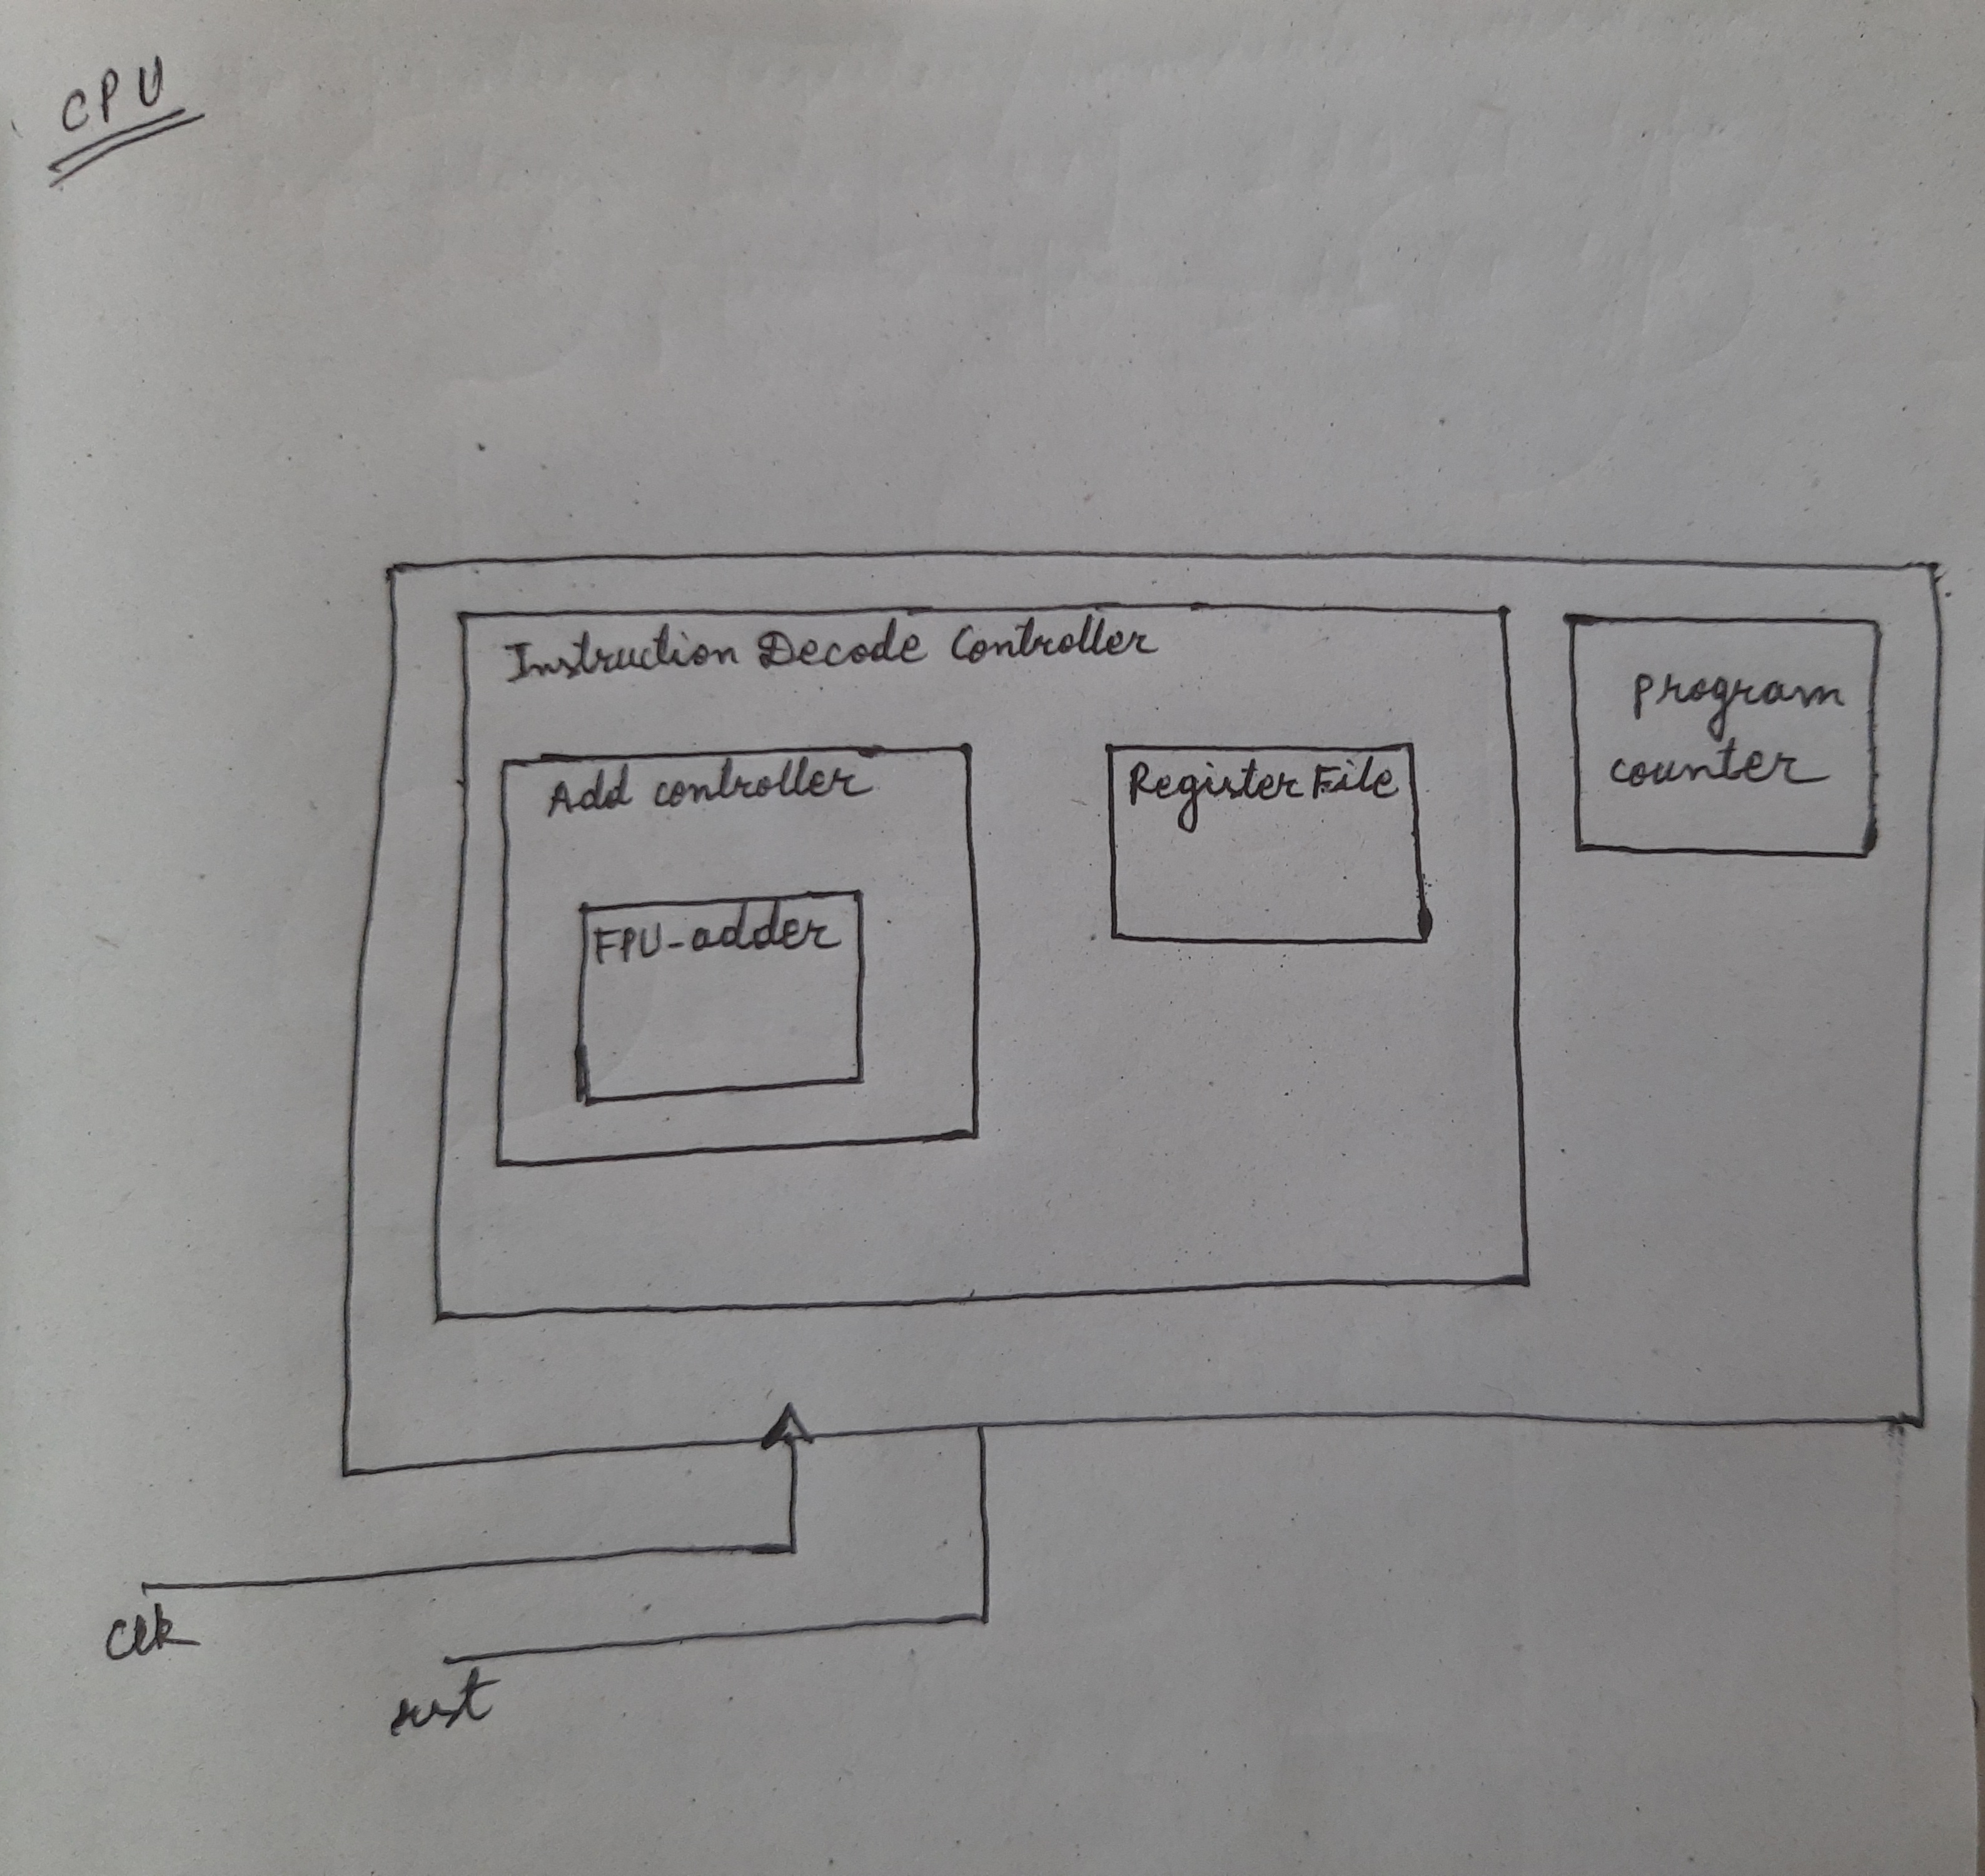 CPU
Instruction Decode Controller
Add controller
FPU-adder
Register File
program
counter
clk
rst